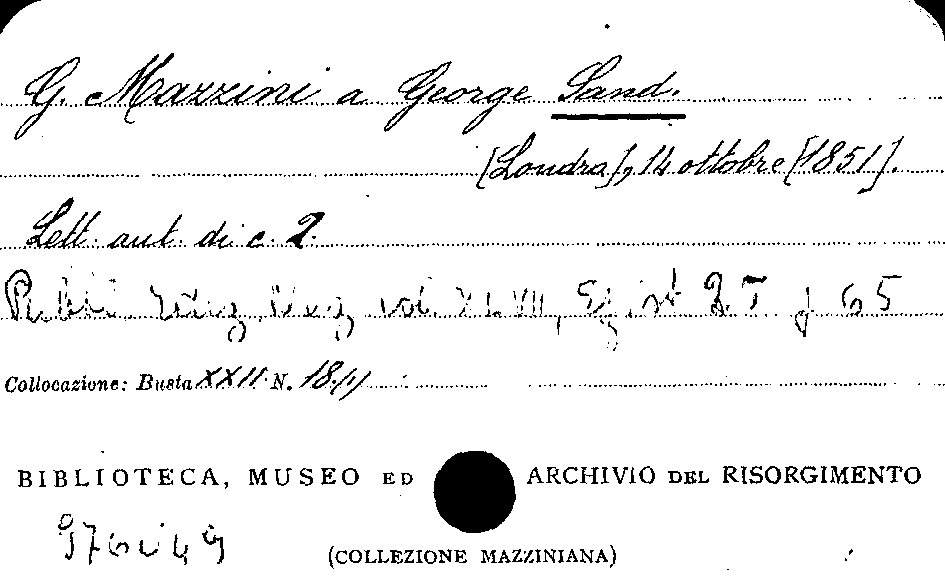 G. Mazzini a George Sand.
[Londra], 14 ottobre [1851].
Lett. aut. di c. 2.
Pubbl. vol. XLVII,
Collocazione: Busta XXII N. 18/1
BIBLIOTECA, MUSEO ED ARCHIVIO DEL RISORGIMENTO
(COLLEZIONE MAZZINIANA)